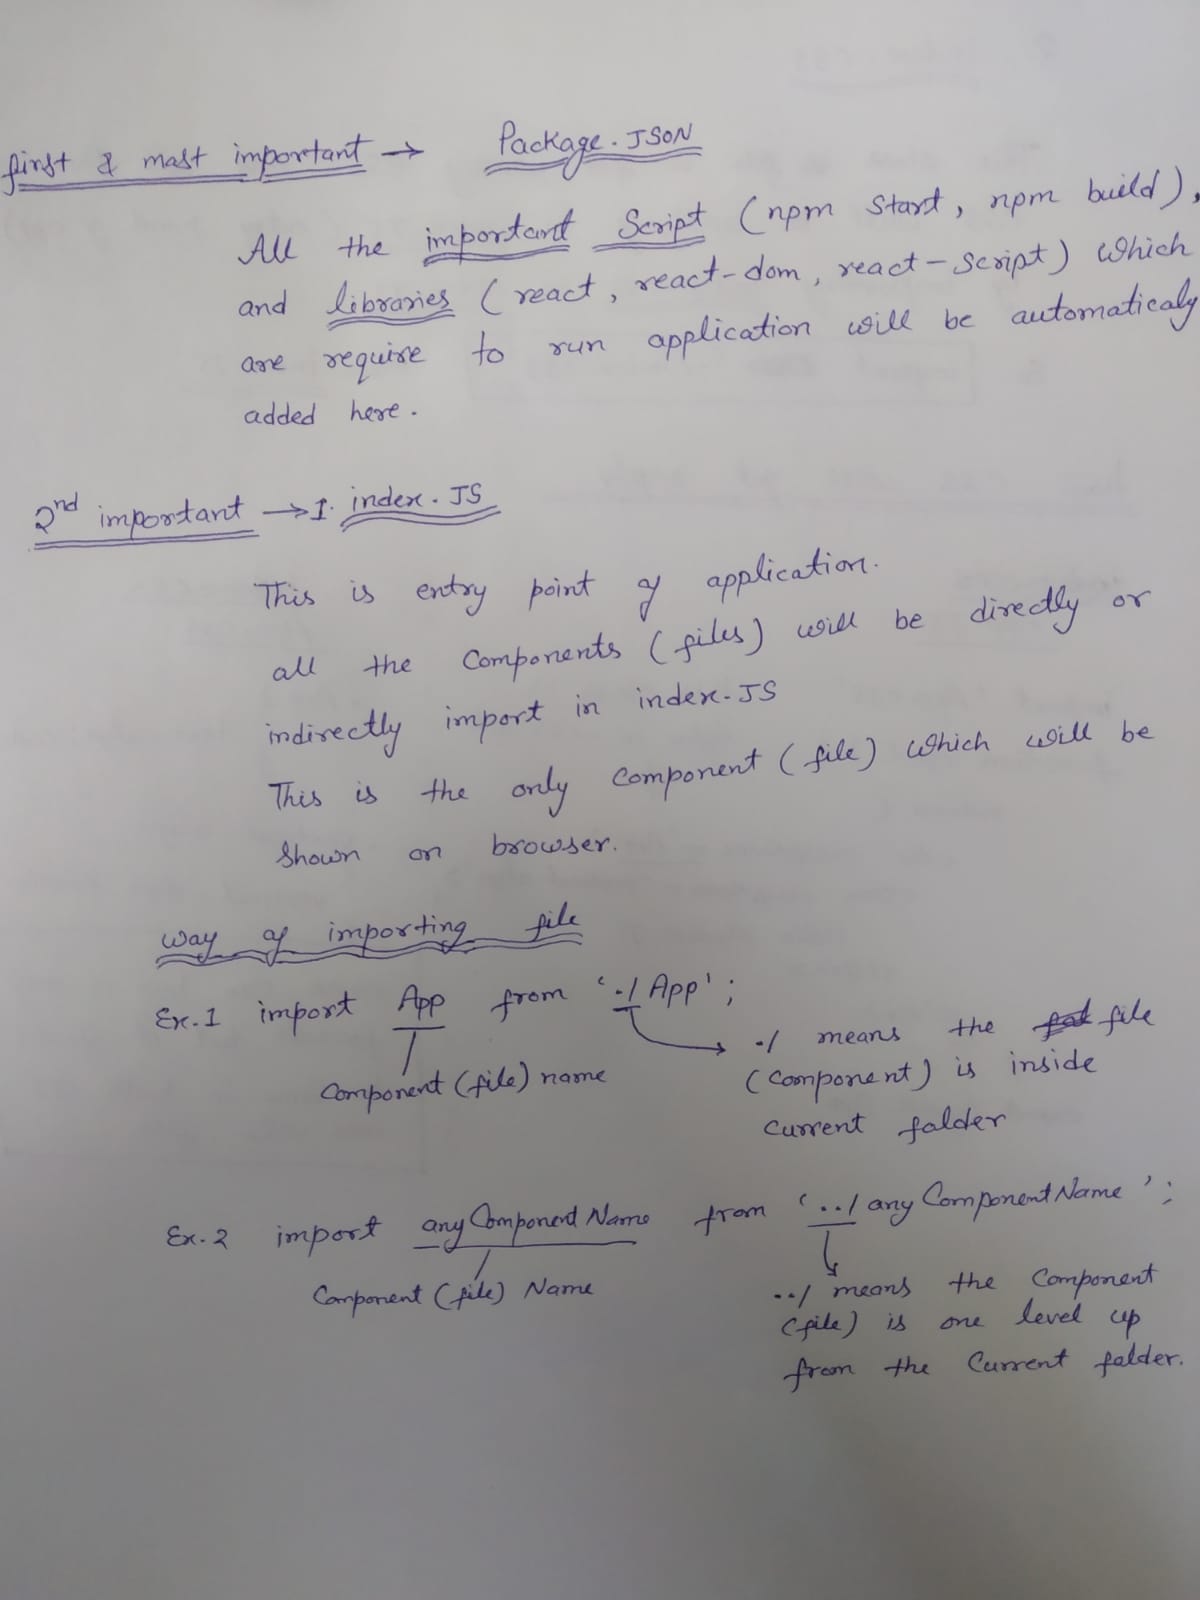 first & mast important → Package.JSON
All the important Script (npm start, npm build),
and libraries (react, react-dom, react-script) which
are require to run application will be automaticaly
added here.
2nd important → 1. index.JS
This is entry point of application.
all the Components (files) will be directly or
indirectly import in index.JS
This is the only Component (file) which will be
Shown on browser.
way of importing file
Ex.1 import App from './App';
Component (file) name
./ means the file
(Component) is inside
Current falder
Ex.2 import anyComponentName from '../anyComponentName';
Component (file) Name
../ means the Component
(file) is one level up
from the Current falder.